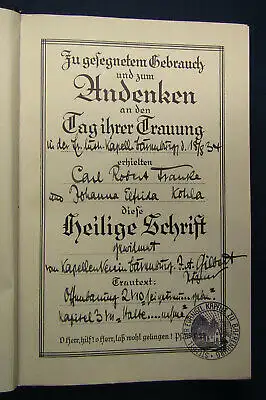 Zu gesegnetem Gebrauch
und zum
Andenken
an den
Tag ihrer Trauung
in der Ev. luth. Kapelle d. 18/8 34
erhielten
Carl Robert Franke
und Johanna Elfrida Kohla
diese
Heilige Schrift
gewidmet
vom Kapellenverein
Trautext:
Offenbarung 2 V 10
Kapitel 3
O Herr, hilf! o Herr, laß wohl gelingen!